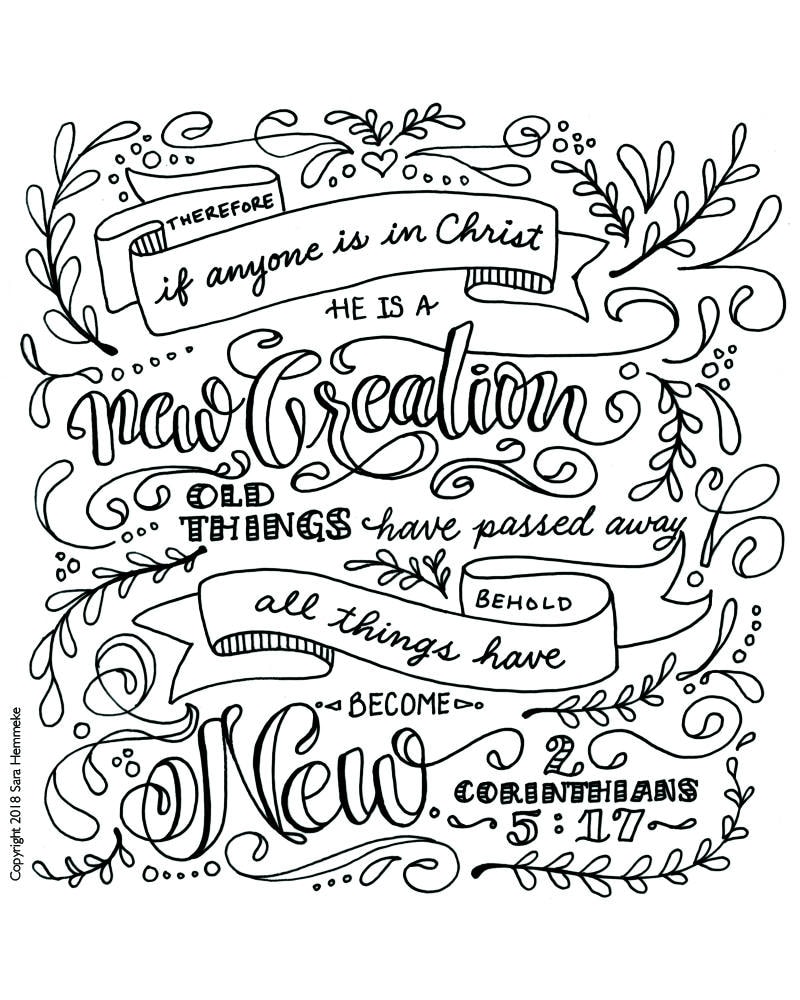 THEREFORE
if anyone is in Christ
HE IS A
new Creation
OLD
THINGS have passed away
BEHOLD
all things have
BECOME
New.
2
CORINTHIANS
5:17
Copyright 2018 Sara Hemmeke